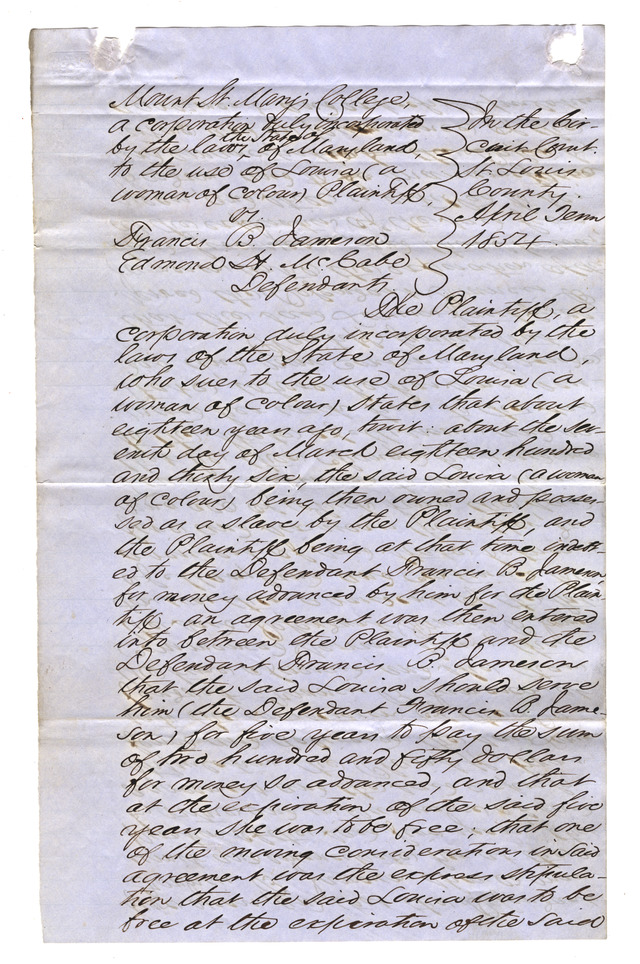 Mount St. Mary's College,
a corporation duly incorporated
the State of
by the laws, of Maryland,
to the use of Louisa (a
woman of colour) Plaintiff,
vs.
Francis B. Jameson
Edmond H. McCabe
Defendants.
In the Cir-
cuit Court.
St. Louis
County.
April Term
1854.
The Plaintiff, a
corporation duly incorporated by the
laws of the State of Maryland,
who sues to the use of Louisa (a
woman of colour) states that about
eighteen years ago, to wit: about the sev-
enth day of March eighteen hundred
and thirty six, the said Louisa (a woman
of colour) being then owned and posses-
sed as a slave by the Plaintiff, and
the Plaintiff being at that time indebt-
ed to the Defendant Francis B. Jameson
for money advanced by him for the Plain-
tiff, an agreement was then entered
into between the Plaintiff and the
Defendant Francis B. Jameson
that the said Louisa should serve
him (the Defendant Francis B. Jame-
son) for five years to pay the sum
of two hundred and fifty dollars
for money so advanced, and that
at the expiration of the said five
years she was to be free; that one
of the moving considerations in said
agreement was the express stipula-
tion that the said Louisa was to be
free at the expiration of the said